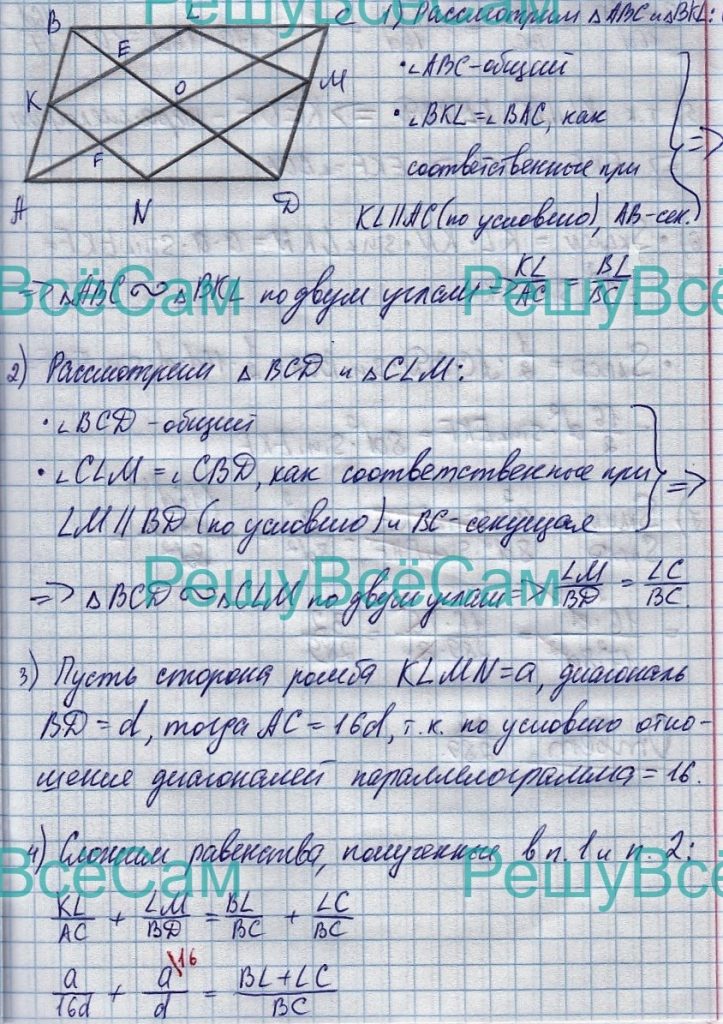 РешуВсёСам
B L C 1) Рассмотрим △ABC и △BKL:
E
• ∠ABC-общий
M
K O
• ∠BKL=∠BAC, как
F
соответственные при
=>
A N D
KL||AC (по условию), AB-сек.
=> △ABC ∾ △BKL по двум углам => KL/AC = BL/BC.
ВсёСам РешуВсё
2) Рассмотрим △BCD и △CLM:
• ∠BCD -общий
• ∠CLM = ∠CBD, как соответственные при
=>
LM || BD (по условию) и BC-секущая
РешуВсёСам
=> △BCD ∾ △CLM по двум углам => LM/BD = LC/BC.
3) Пусть сторона ромба KLMN=a, диагональ
BD=d, тогда AC=16d, т.к. по условию отно-
шение диагоналей параллелограмма=16.
4) Сложим равенства, полученные в п.1 и п.2:
ВсёСам РешуВсё
KL/AC + LM/BD = BL/BC + LC/BC
a/16d + a\16/d = BL+LC/BC